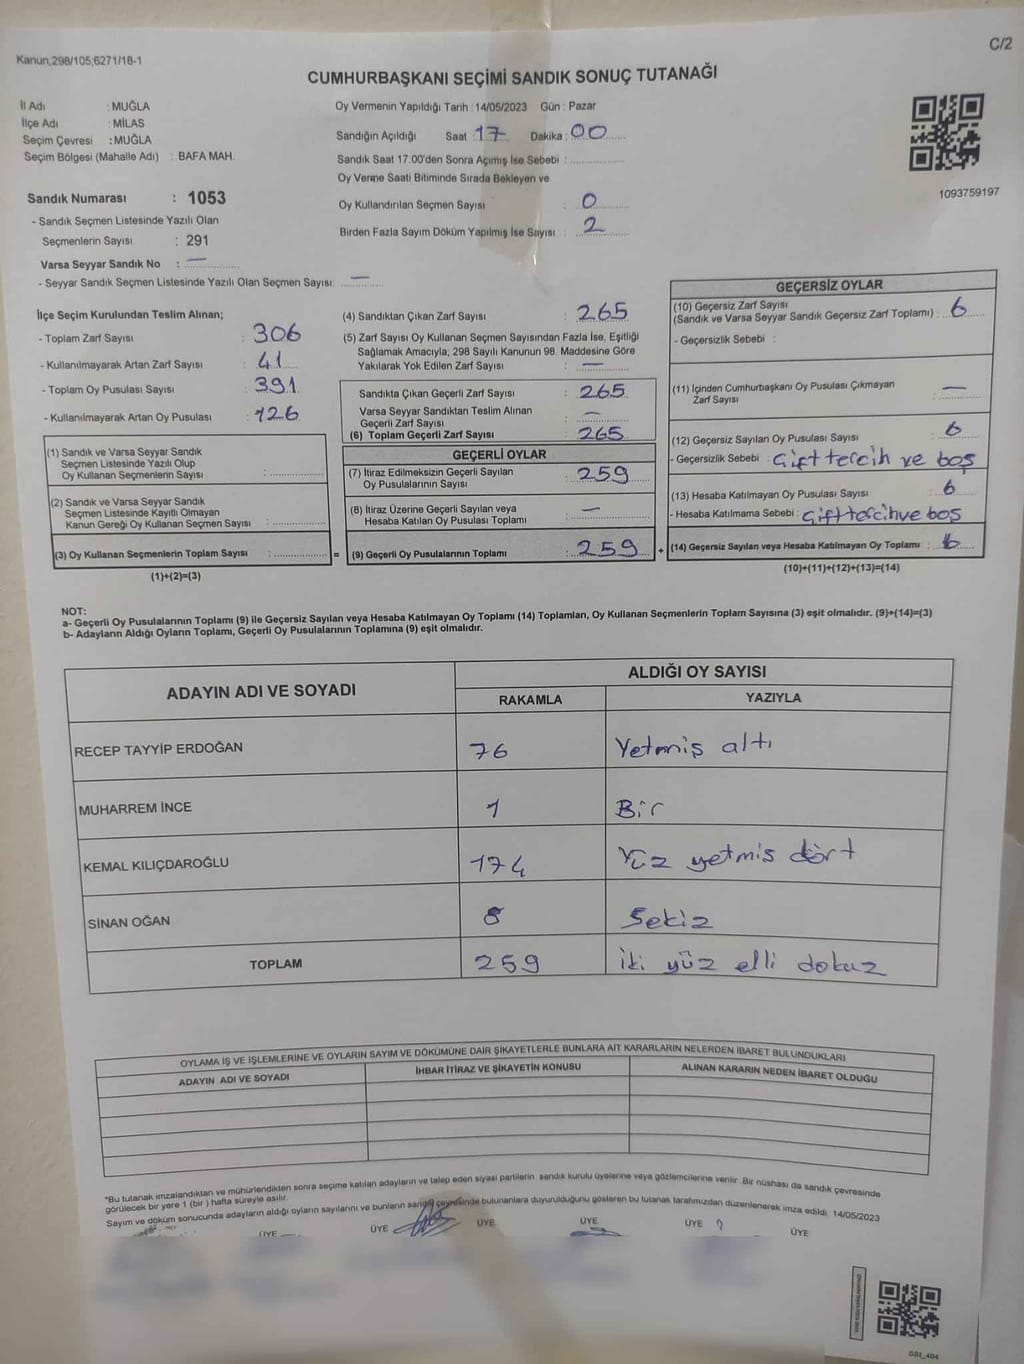 Kanun,298/105;6271/18-1
C/2
CUMHURBAŞKANI SEÇİMİ SANDIK SONUÇ TUTANAĞI
İl Adı : MUĞLA
İlçe Adı : MİLAS
Seçim Çevresi : MUĞLA
Seçim Bölgesi (Mahalle Adı) : BAFA MAH.
Sandık Numarası : 1053
- Sandık Seçmen Listesinde Yazılı Olan
Seçmenlerin Sayısı : 291
Varsa Seyyar Sandık No : —
- Seyyar Sandık Seçmen Listesinde Yazılı Olan Seçmen Sayısı: —
Oy Vermenin Yapıldığı Tarih : 14/05/2023 Gün : Pazar
Sandığın Açıldığı Saat : 17 Dakika : 00
Sandık Saat 17.00'den Sonra Açımış İse Sebebi :
Oy Verme Saati Bitiminde Sırada Bekleyen ve
Oy Kullandırılan Seçmen Sayısı : 0
Birden Fazla Sayım Döküm Yapılmış İse Sayısı : 2
1093759197
İlçe Seçim Kurulundan Teslim Alınan;
- Toplam Zarf Sayısı : 306
- Kullanılmayarak Artan Zarf Sayısı : 41
- Toplam Oy Pusulası Sayısı : 391
- Kullanılmayarak Artan Oy Pusulası : 126
(1) Sandık ve Varsa Seyyar Sandık
Seçmen Listesinde Yazılı Olup
Oy Kullanan Seçmenlerin Sayısı :
(2) Sandık ve Varsa Seyyar Sandık
Seçmen Listesinde Kayıtlı Olmayan
Kanun Gereği Oy Kullanan Seçmen Sayısı :
(3) Oy Kullanan Seçmenlerin Toplam Sayısı :
(1)+(2)=(3)
=
(4) Sandıktan Çıkan Zarf Sayısı : 265
(5) Zarf Sayısı Oy Kullanan Seçmen Sayısından Fazla İse, Eşitliği
Sağlamak Amacıyla; 298 Sayılı Kanunun 98. Maddesine Göre
Yakılarak Yok Edilen Zarf Sayısı : —
Sandıkta Çıkan Geçerli Zarf Sayısı : 265
Varsa Seyyar Sandıktan Teslim Alınan
Geçerli Zarf Sayısı : —
(6) Toplam Geçerli Zarf Sayısı : 265
GEÇERLİ OYLAR
(7) İtiraz Edilmeksizin Geçerli Sayılan
Oy Pusulalarının Sayısı : 259
(8) İtiraz Üzerine Geçerli Sayılan veya
Hesaba Katılan Oy Pusulası Toplamı : —
(9) Geçerli Oy Pusulalarının Toplamı : 259
+
GEÇERSİZ OYLAR
(10) Geçersiz Zarf Sayısı
(Sandık ve Varsa Seyyar Sandık Geçersiz Zarf Toplamı) : 6
- Geçersizlik Sebebi :
(11) İçinden Cumhurbaşkanı Oy Pusulası Çıkmayan
Zarf Sayısı : —
(12) Geçersiz Sayılan Oy Pusulası Sayısı : 6
- Geçersizlik Sebebi : Çift tercih ve boş
(13) Hesaba Katılmayan Oy Pusulası Sayısı : 6
- Hesaba Katılmama Sebebi : Çift tercih ve boş
(14) Geçersiz Sayılan veya Hesaba Katılmayan Oy Toplamı : 6
(10)+(11)+(12)+(13)=(14)
NOT:
a- Geçerli Oy Pusulalarının Toplamı (9) ile Geçersiz Sayılan veya Hesaba Katılmayan Oy Toplamı (14) Toplamları, Oy Kullanan Seçmenlerin Toplam Sayısına (3) eşit olmalıdır. (9)+(14)=(3)
b- Adayların Aldığı Oyların Toplamı, Geçerli Oy Pusulalarının Toplamına (9) eşit olmalıdır.
ADAYIN ADI VE SOYADI
ALDIĞI OY SAYISI
RAKAMLA YAZIYLA
RECEP TAYYİP ERDOĞAN 76 Yetmiş altı
MUHARREM İNCE 1 Bir
KEMAL KILIÇDAROĞLU 174 Yüz yetmis dört
SİNAN OĞAN 8 Sekiz
TOPLAM 259 İki yüz elli dokuz
OYLAMA İŞ VE İŞLEMLERİNE VE OYLARIN SAYIM VE DÖKÜMÜNE DAİR ŞİKAYETLERLE BUNLARA AİT KARARLARIN NELERDEN İBARET BULUNDUKLARI
ADAYIN ADI VE SOYADI İHBAR İTİRAZ VE ŞİKAYETİN KONUSU ALINAN KARARIN NEDEN İBARET OLDUĞU
*Bu tutanak imzalandıktan ve mühürlendikten sonra seçime katılan adayların ve talep eden siyasi partilerin sandık kurulu üyelerine veya gözlemcilerine verilir. Bir nüshası da sandık çevresinde
görülecek bir yere 1 (bir ) hafta süreyle asılır.
Sayım ve döküm sonucunda adayların aldığı oyların sayılarını ve bunların sandık çevresinde bulunanlara duyurulduğunu gösteren bu tutanak tarafımızdan düzenlenerek imza edildi. 14/05/2023
ÜYE ÜYE ÜYE ÜYE ÜYE ÜYE